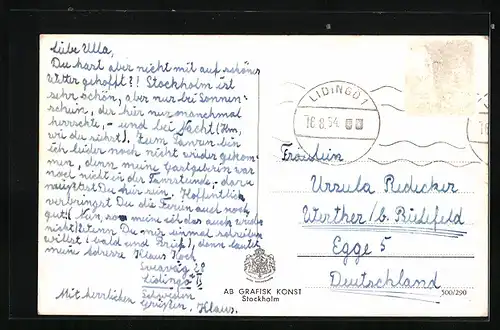 Liebe Ulla,
Du hast aber nicht mit auf schönes
Wetter gehofft?! Stockholm ist
sehr schön, aber nur bei Sonnen-
schein, der hier nur manchmal
herrscht, – und bei Nacht (Hm,
wie du siehst). Zum Tanzen bin
ich leider noch nicht wieder gekom-
men, denn meine Gastgeberin war
noch nicht in der Tanzstunde, dazu
Du hier sein. Hoffentlich
verbringst Du die Ferien auch noch
gut! Nun, so meine ich das auch wieder
nicht! Wenn Du mir einmal schreiben
willst (bald und Brief), dann lautet
meine Adresse Klaus Koch
Sveaväg 28
Lidingö
Schweden
Mit herzlichen Grüßen, Klaus.
LIDINGÖ 1
16.8.54.
Fräulein
Ursula Redecker
Werther / b. Bielefeld
Egge 5
Deutschland
AB GRAFISK KONST
Stockholm
500/290